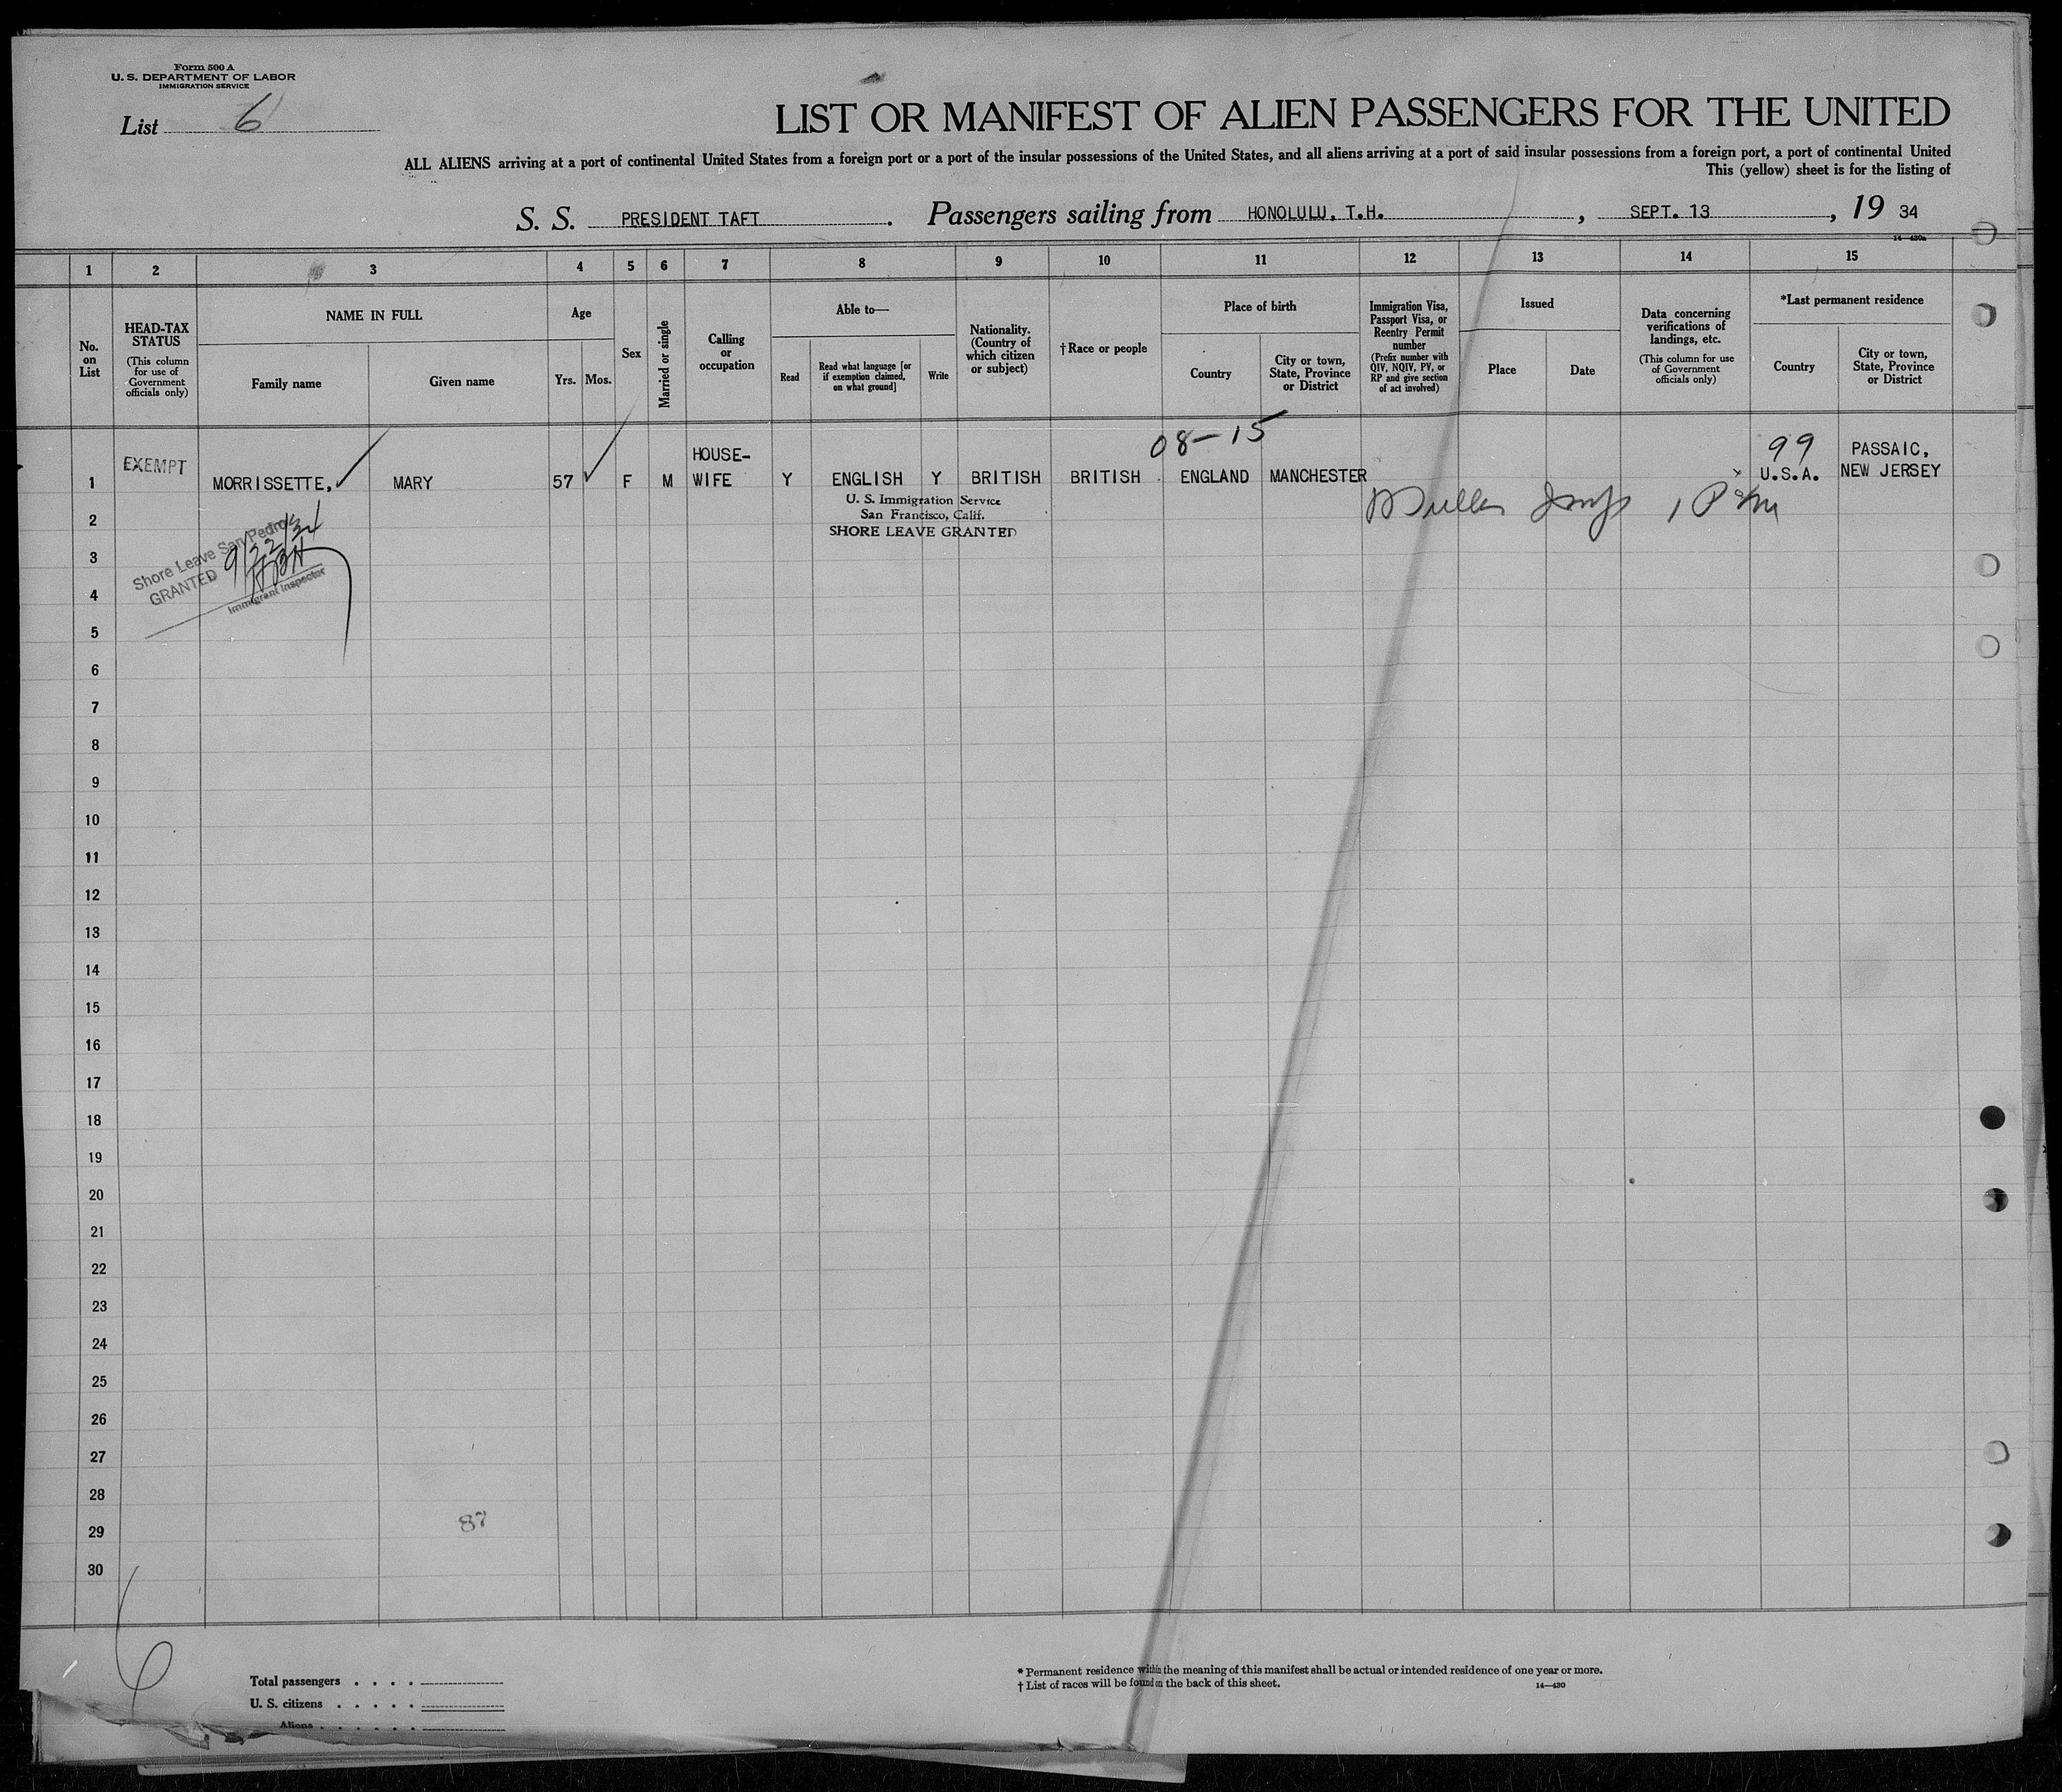 Form 500 A
U. S. DEPARTMENT OF LABOR
IMMIGRATION SERVICE
List 6
LIST OR MANIFEST OF ALIEN PASSENGERS FOR THE UNITED
ALL ALIENS arriving at a port of continental United States from a foreign port or a port of the insular possessions of the United States, and all aliens arriving at a port of said insular possessions from a foreign port, a port of continental United
This (yellow) sheet is for the listing of
S. S. PRESIDENT TAFT. Passengers sailing from HONOLULU, T.H., SEPT. 13, 19 34
14—430a
1 2 3 4 5 6 7 8 9 10 11 12 13 14 15
No. on List
HEAD-TAX STATUS
(This column for use of Government officials only)
NAME IN FULL
Family name
Given name
Age
Yrs. Mos.
Sex
Married or single
Calling or occupation
Able to—
Read
Read what language [or if exemption claimed, on what ground]
Write
Nationality. (Country of which citizen or subject)
†Race or people
Place of birth
Country
City or town, State, Province or District
Immigration Visa, Passport Visa, or Reentry Permit number
(Prefix number with QIV, NQIV, PV, or RP and give section of act involved)
Issued
Place
Date
Data concerning verifications of landings, etc.
(This column for use of Government officials only)
*Last permanent residence
Country
City or town, State, Province or District
08-15
99
1 EXEMPT MORRISSETTE, MARY 57 F M HOUSE-WIFE Y ENGLISH Y BRITISH BRITISH ENGLAND MANCHESTER U.S.A. PASSAIC, NEW JERSEY
U. S. Immigration Service
San Francisco, Calif.
SHORE LEAVE GRANTED
2
Shore Leave San Pedro
GRANTED 9/22/34
Immigrant Inspector
3
4
5
6
7
8
9
10
11
12
13
14
15
16
17
18
19
20
21
22
23
24
25
26
27
28
87
29
30
6
Total passengers . . . .
U. S. citizens . . . . .
Aliens . . . . . .
* Permanent residence within the meaning of this manifest shall be actual or intended residence of one year or more.
† List of races will be found on the back of this sheet.
14—430